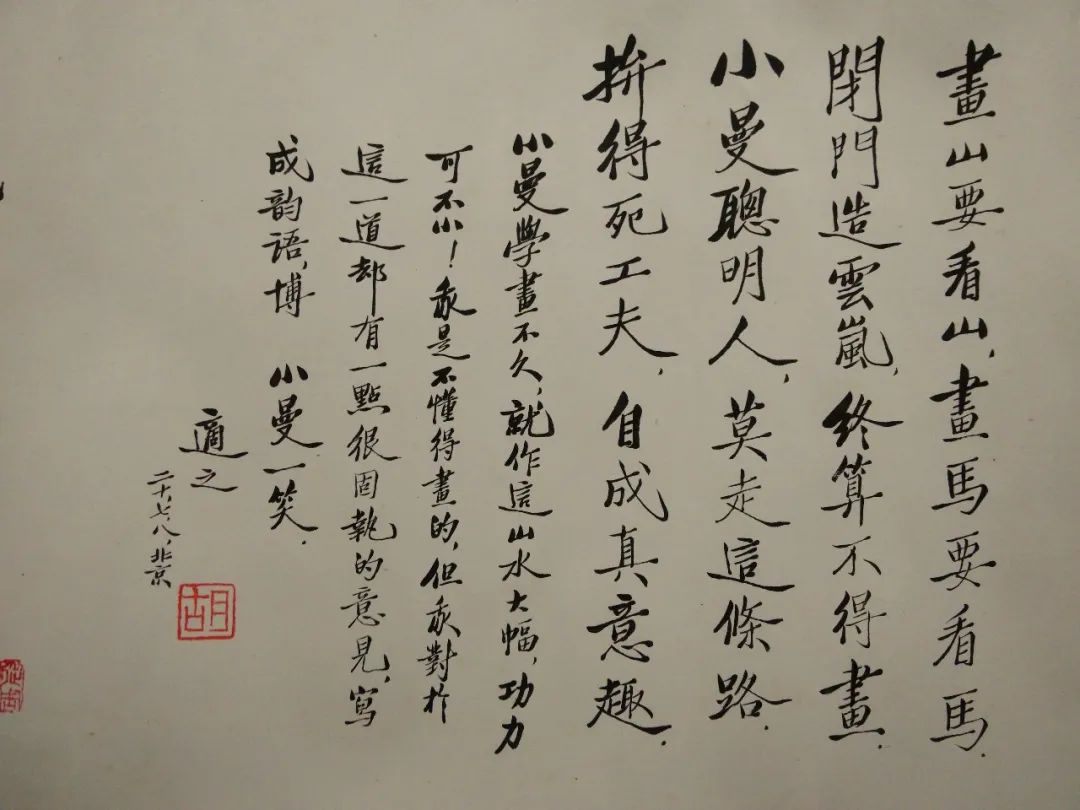 畫山要看山，畫馬要看馬．
閉門造雲嵐，終算不得畫．
小曼聰明人，莫走這條路．
拚得死工夫，自成真意趣．
小曼學畫不久，就作這山水大幅，功力
可不小！我是不懂得畫的，但我對於
這一道却有一點很固執的意見，寫
成韵語，博　小曼一笑．
適之
二十，七，八，北京
胡